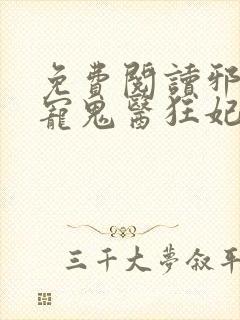 免費閱讀邪
寵鬼醫狂妃
三千大夢叙平